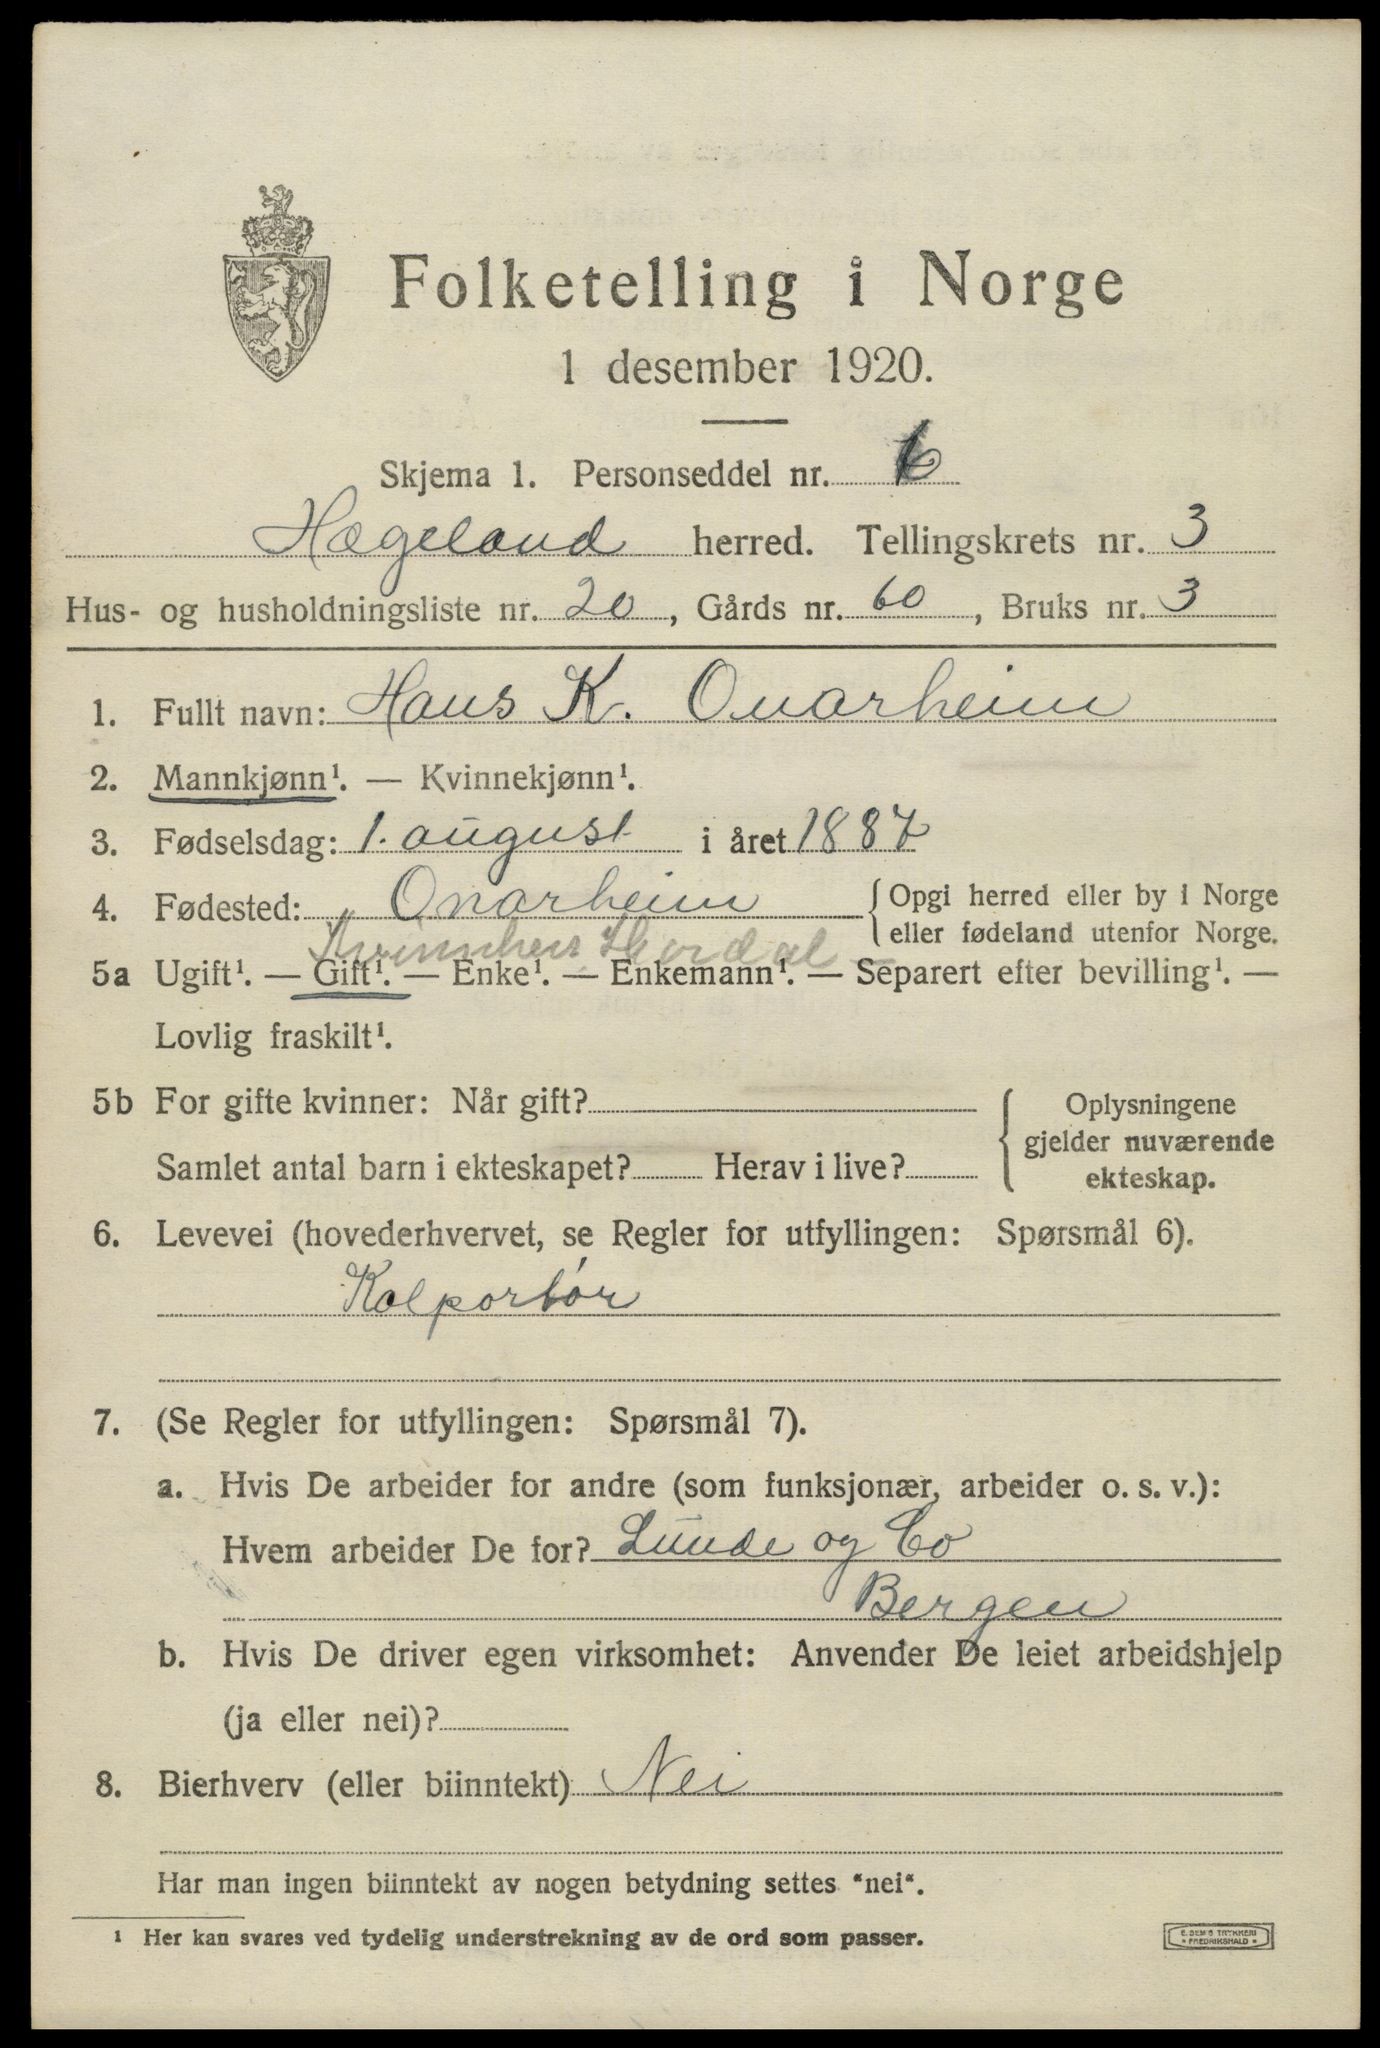 Folketelling i Norge
1 desember 1920.
Skjema 1. Personseddel nr. 6
Hægeland herred. Tellingskrets nr. 3
Hus- og husholdningsliste nr. 20, Gårds nr. 60, Bruks nr. 3
1. Fullt navn: Hans K. Onarheim
2. Mannkjønn¹. — Kvinnekjønn¹.
3. Fødselsdag: 1. august i året 1887
4. Fødested: Onarheim { Opgi herred eller by i Norge
eller fødeland utenfor Norge.
Kvinnherr. Hordal
5a Ugift¹. — Gift¹. — Enke¹. — Enkemann¹. — Separert efter bevilling¹. —
Lovlig fraskilt¹.
5b For gifte kvinner: Når gift? { Oplysningene
gjelder nuværende
Samlet antal barn i ekteskapet? Herav i live? ekteskap.
6. Levevei (hovederhvervet, se Regler for utfyllingen: Spørsmål 6).
Kolportør
7. (Se Regler for utfyllingen: Spørsmål 7).
a. Hvis De arbeider for andre (som funksjonær, arbeider o. s. v.):
Hvem arbeider De for? Lunde og Co
Bergen
b. Hvis De driver egen virksomhet: Anvender De leiet arbeidshjelp
(ja eller nei)?
8. Bierhverv (eller biinntekt) Nei
Har man ingen biinntekt av nogen betydning settes "nei".
¹ Her kan svares ved tydelig understrekning av de ord som passer.
E. SEM'S TRYKKERI
* FREDRIKSHALD *